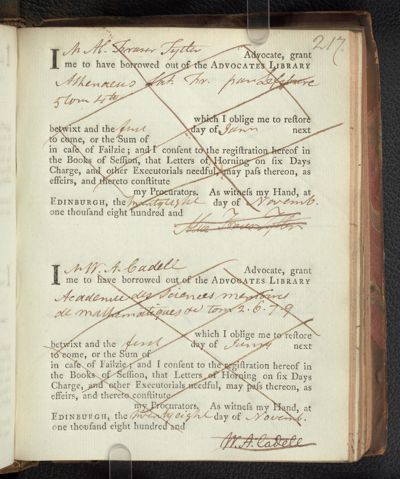 217.
I M Al. Fraser Tytler Advocate, grant
me to have borrowed out of the ADVOCATES LIBRARY
Athenaeus par Lefebvre
5 tom 4to
which I oblige me to restore
betwixt and the first day of Janry next
to come, or the Sum of
in case of Failzie; and I consent to the registration hereof in
the Books of Session, that Letters of Horning on six Days
Charge, and other Executorials needful, may pass thereon, as
effeirs, and thereto constitute
my Procurators. As witness my Hand, at
EDINBURGH, the twentyeight day of Novemb.
one thousand eight hundred and
Alex Fraser Tytler
I M W. A. Cadell Advocate, grant
me to have borrowed out of the ADVOCATES LIBRARY
Academie des Sciences memoires
de mathematiques de tom 2. 6. 7. 9
which I oblige me to restore
betwixt and the first day of Janry next
to come, or the Sum of
in case of Failzie; and I consent to the registration hereof in
the Books of Session, that Letters of Horning on six Days
Charge, and other Executorials needful, may pass thereon, as
effeirs, and thereto constitute
my Procurators. As witness my Hand, at
EDINBURGH, the twentyeight day of Novemb.
one thousand eight hundred and
W. A. Cadell